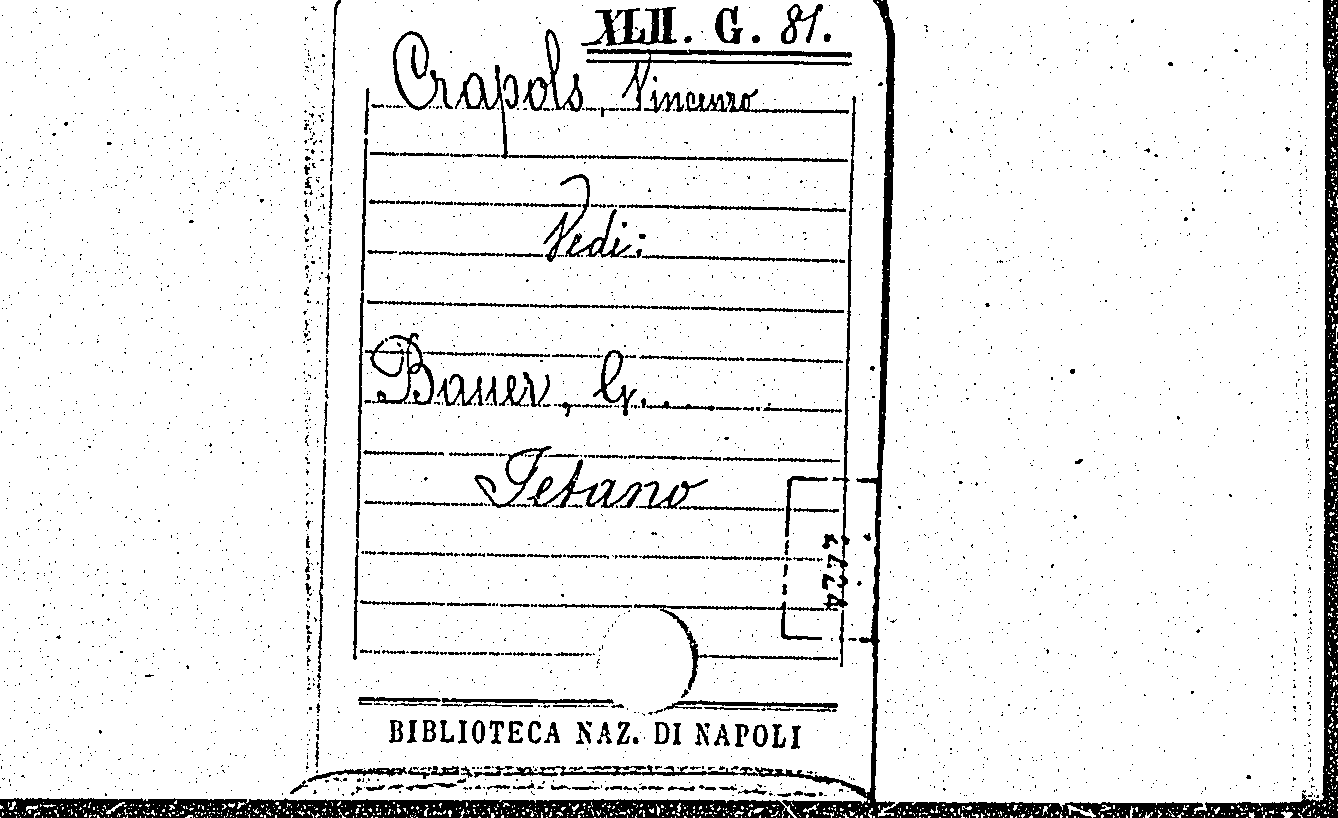 XLII. G. 81.
Crapols, Vincenzo
Vedi:
Bauer, G. . .
Tetano
BIBLIOTECA NAZ. DI NAPOLI